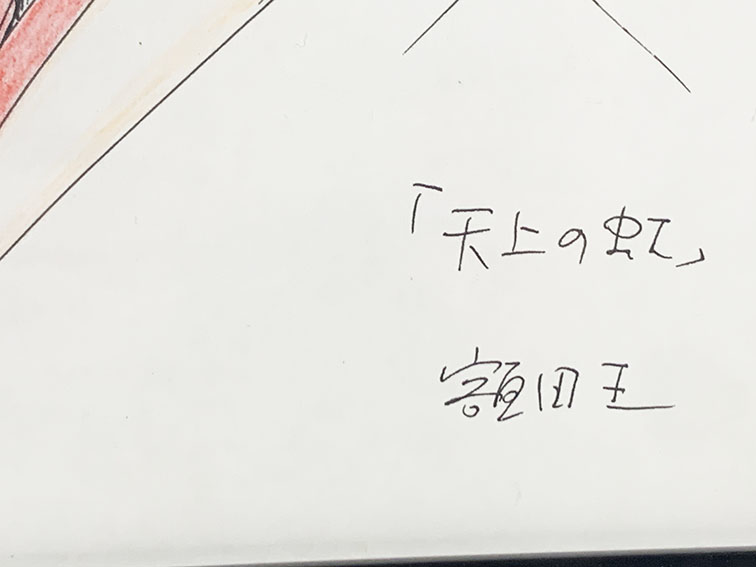 「天上の虹」
額田王